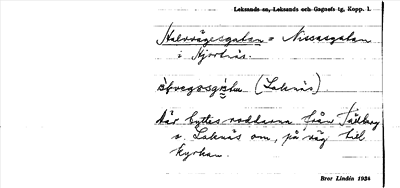 Leksands sn, Leksands och Gagnefs tg, Kopp. l.
Halvvägesgatan = Nissasgatan
i Hjortnäs.
(Laknäs)
Här byttes roddarna från Tällberg
o. Laknäs om, på väg till
kyrkan.
Bror Lindén 1934